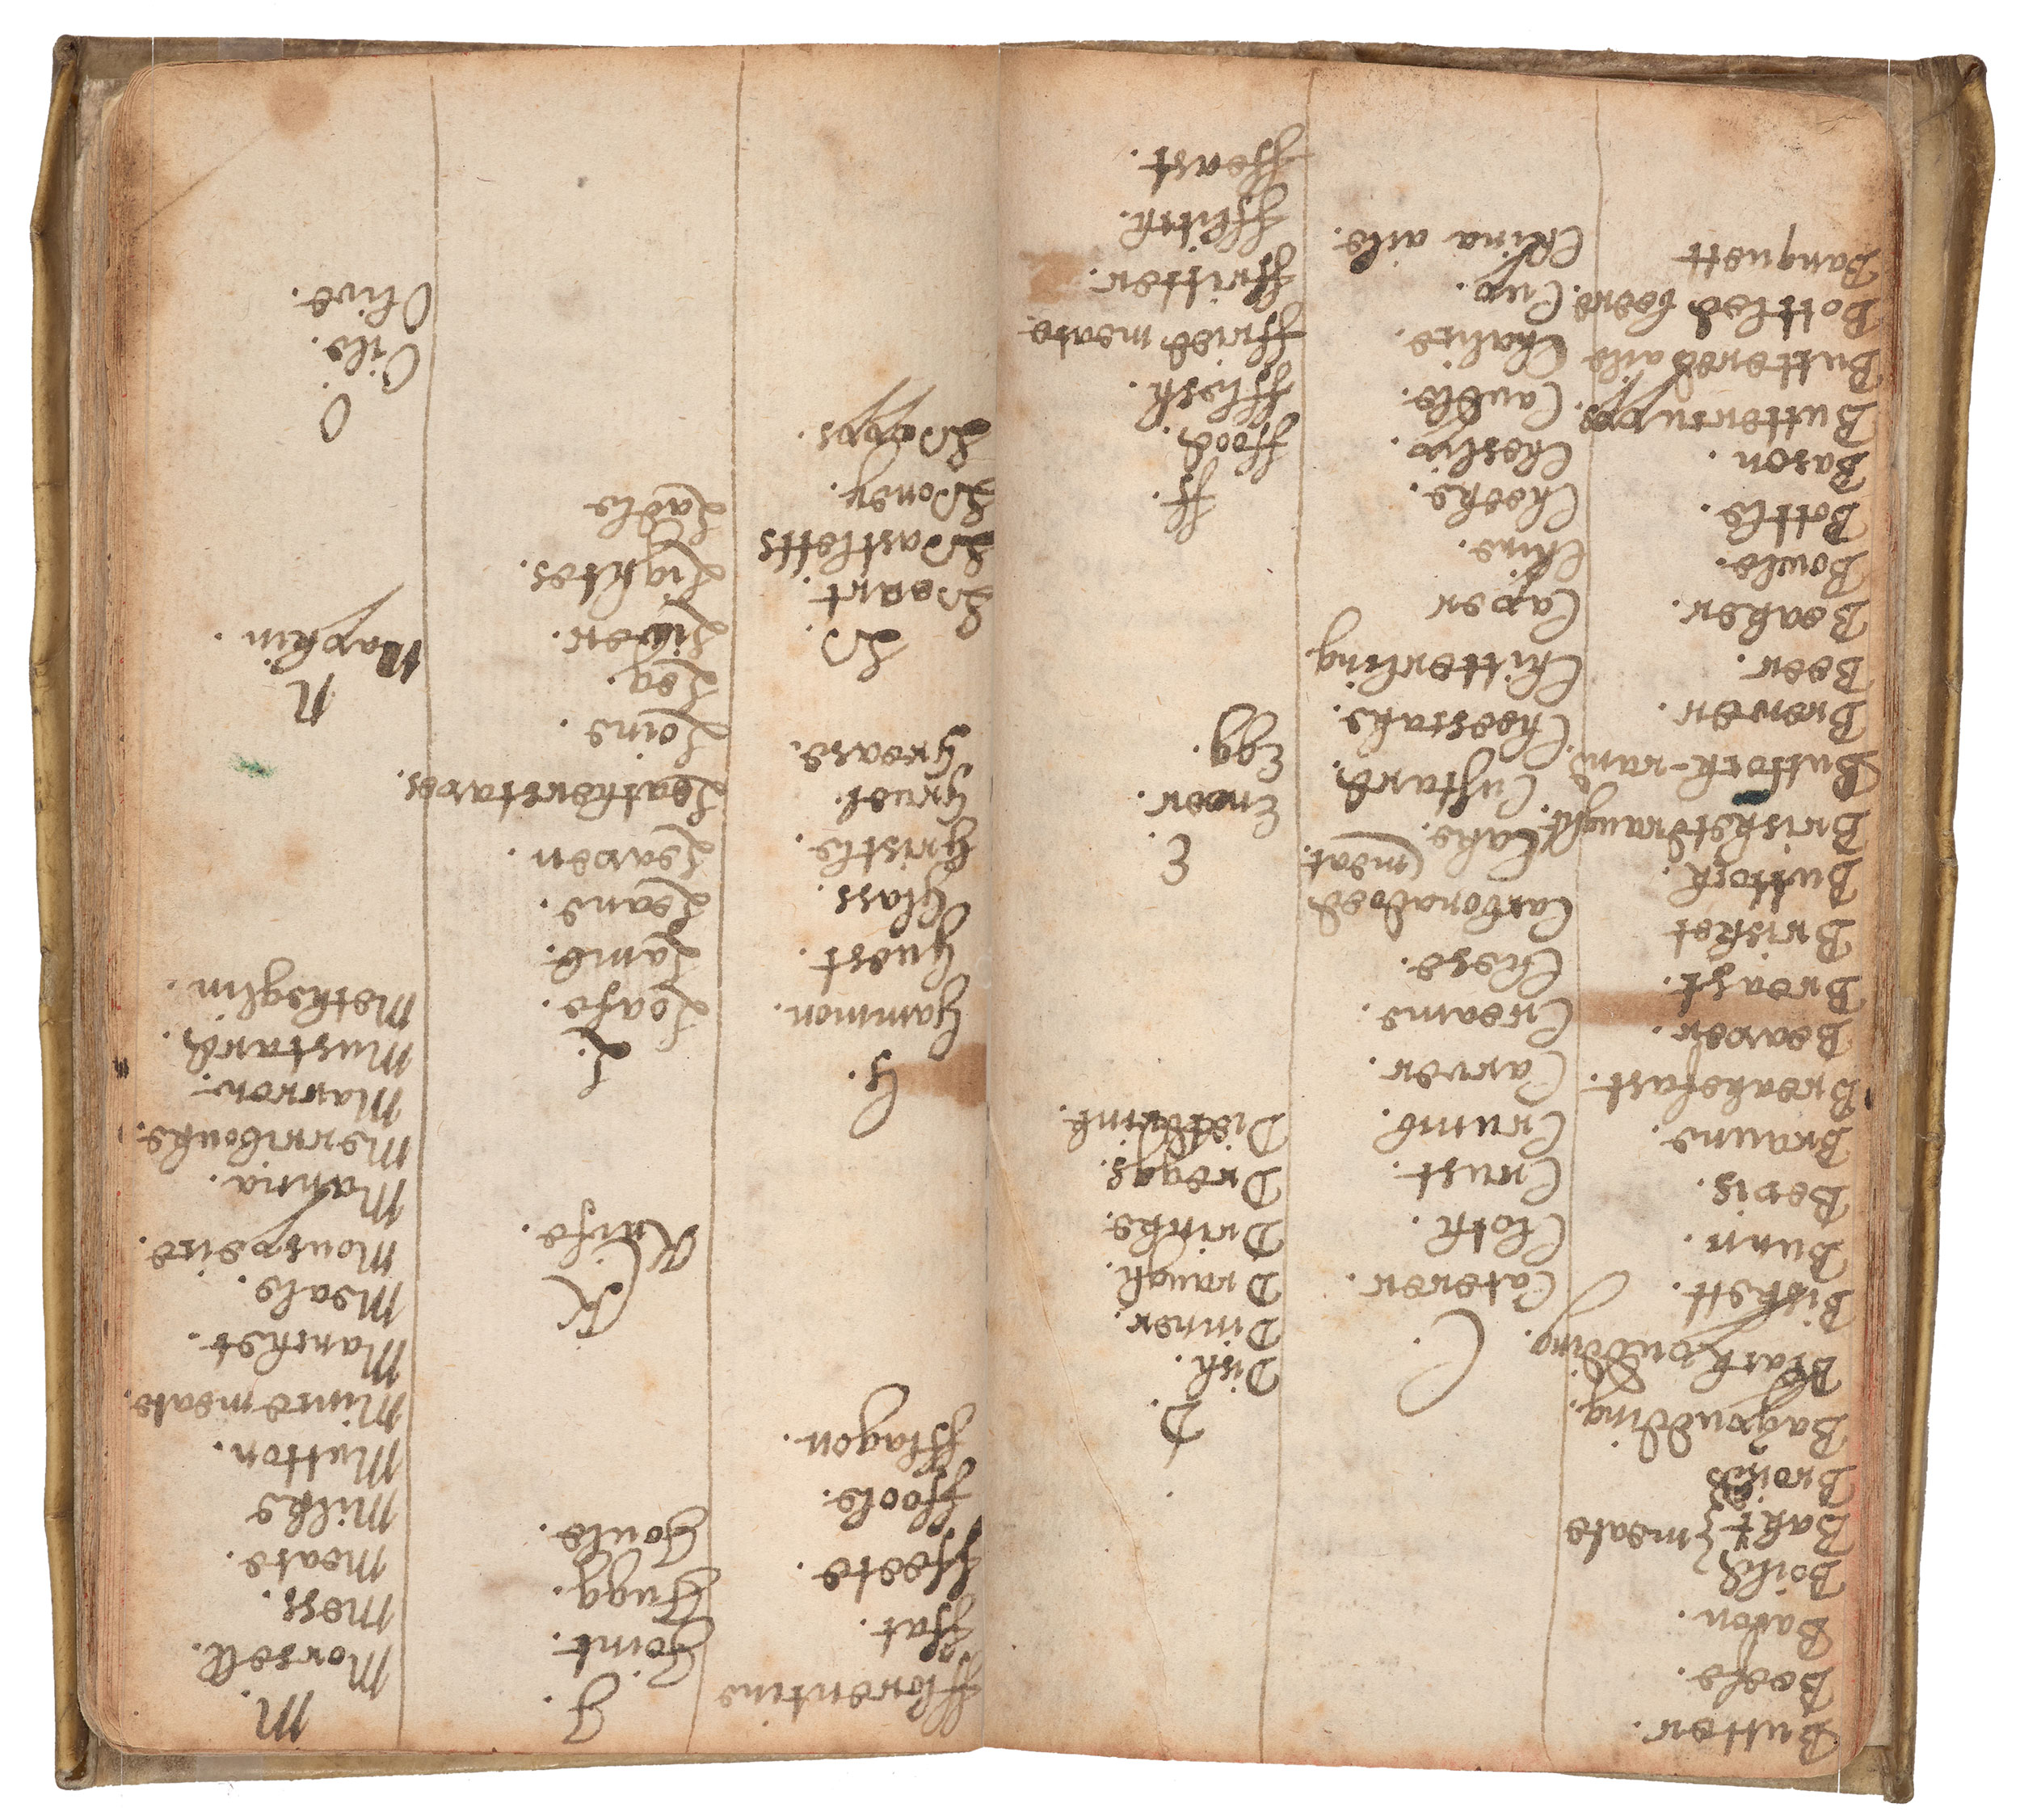 Butter.
Beefe.
Bacon.
Boild
Bakt } meate
Broild
Bagpudding.
Blackpudding.
Biskett.
Bunn.
Bevis.
Braune.
Breakefast.
Beaver.
Breast.
Brisket
Buttock.
Brisketdraught.
Buttock-rand.
Brewer.
Beer.
Beaker.
Boule.
Bottle.
Bason.
Butteredaile
Bottled beere.
Banquett
C.
Caterer.
Cloth.
Crust.
Crumb.
Carver.
Creame.
Chese.
Carbonadoed
(meat.
Cake.
Custard.
Cheescake.
Chitterling
Caper
Chine.
Cheeke.
Cheslip.
Caudle.
Chalice.
Cup.
China aile.
D.
Dish.
Dinner.
Draugh.
Drinke.
Dreggs.
Dietdrink.
E.
Ewer.
Egg.
ff.
ffood.
fflesh.
ffried meate
ffritter.
fflitch.
ffeast.
fflorentine
ffat.
ffeete.
ffoole.
fflagon.
G.
Gammon.
Guest.
Glass.
Gristle.
Gruel.
Grease.
H.
Heart.
Hastletts
Honey.
Hopps.
J.
Joint.
Jugg.
Joule.
K
Knife.
L.
Loafe.
Lamb.
Leane.
Leaven.
Loine.
Leg.
Liver.
Lightes.
Ladle
M.
Morsell.
Mess.
Meate.
Milke
Mutton.
Mince meate.
Manchet.
Meale.
Mouspeice.
Manna.
Merribouke.
Marrow.
Mustard.
Metheglin.
N
Napkin.
O.
Oile.
Olive.